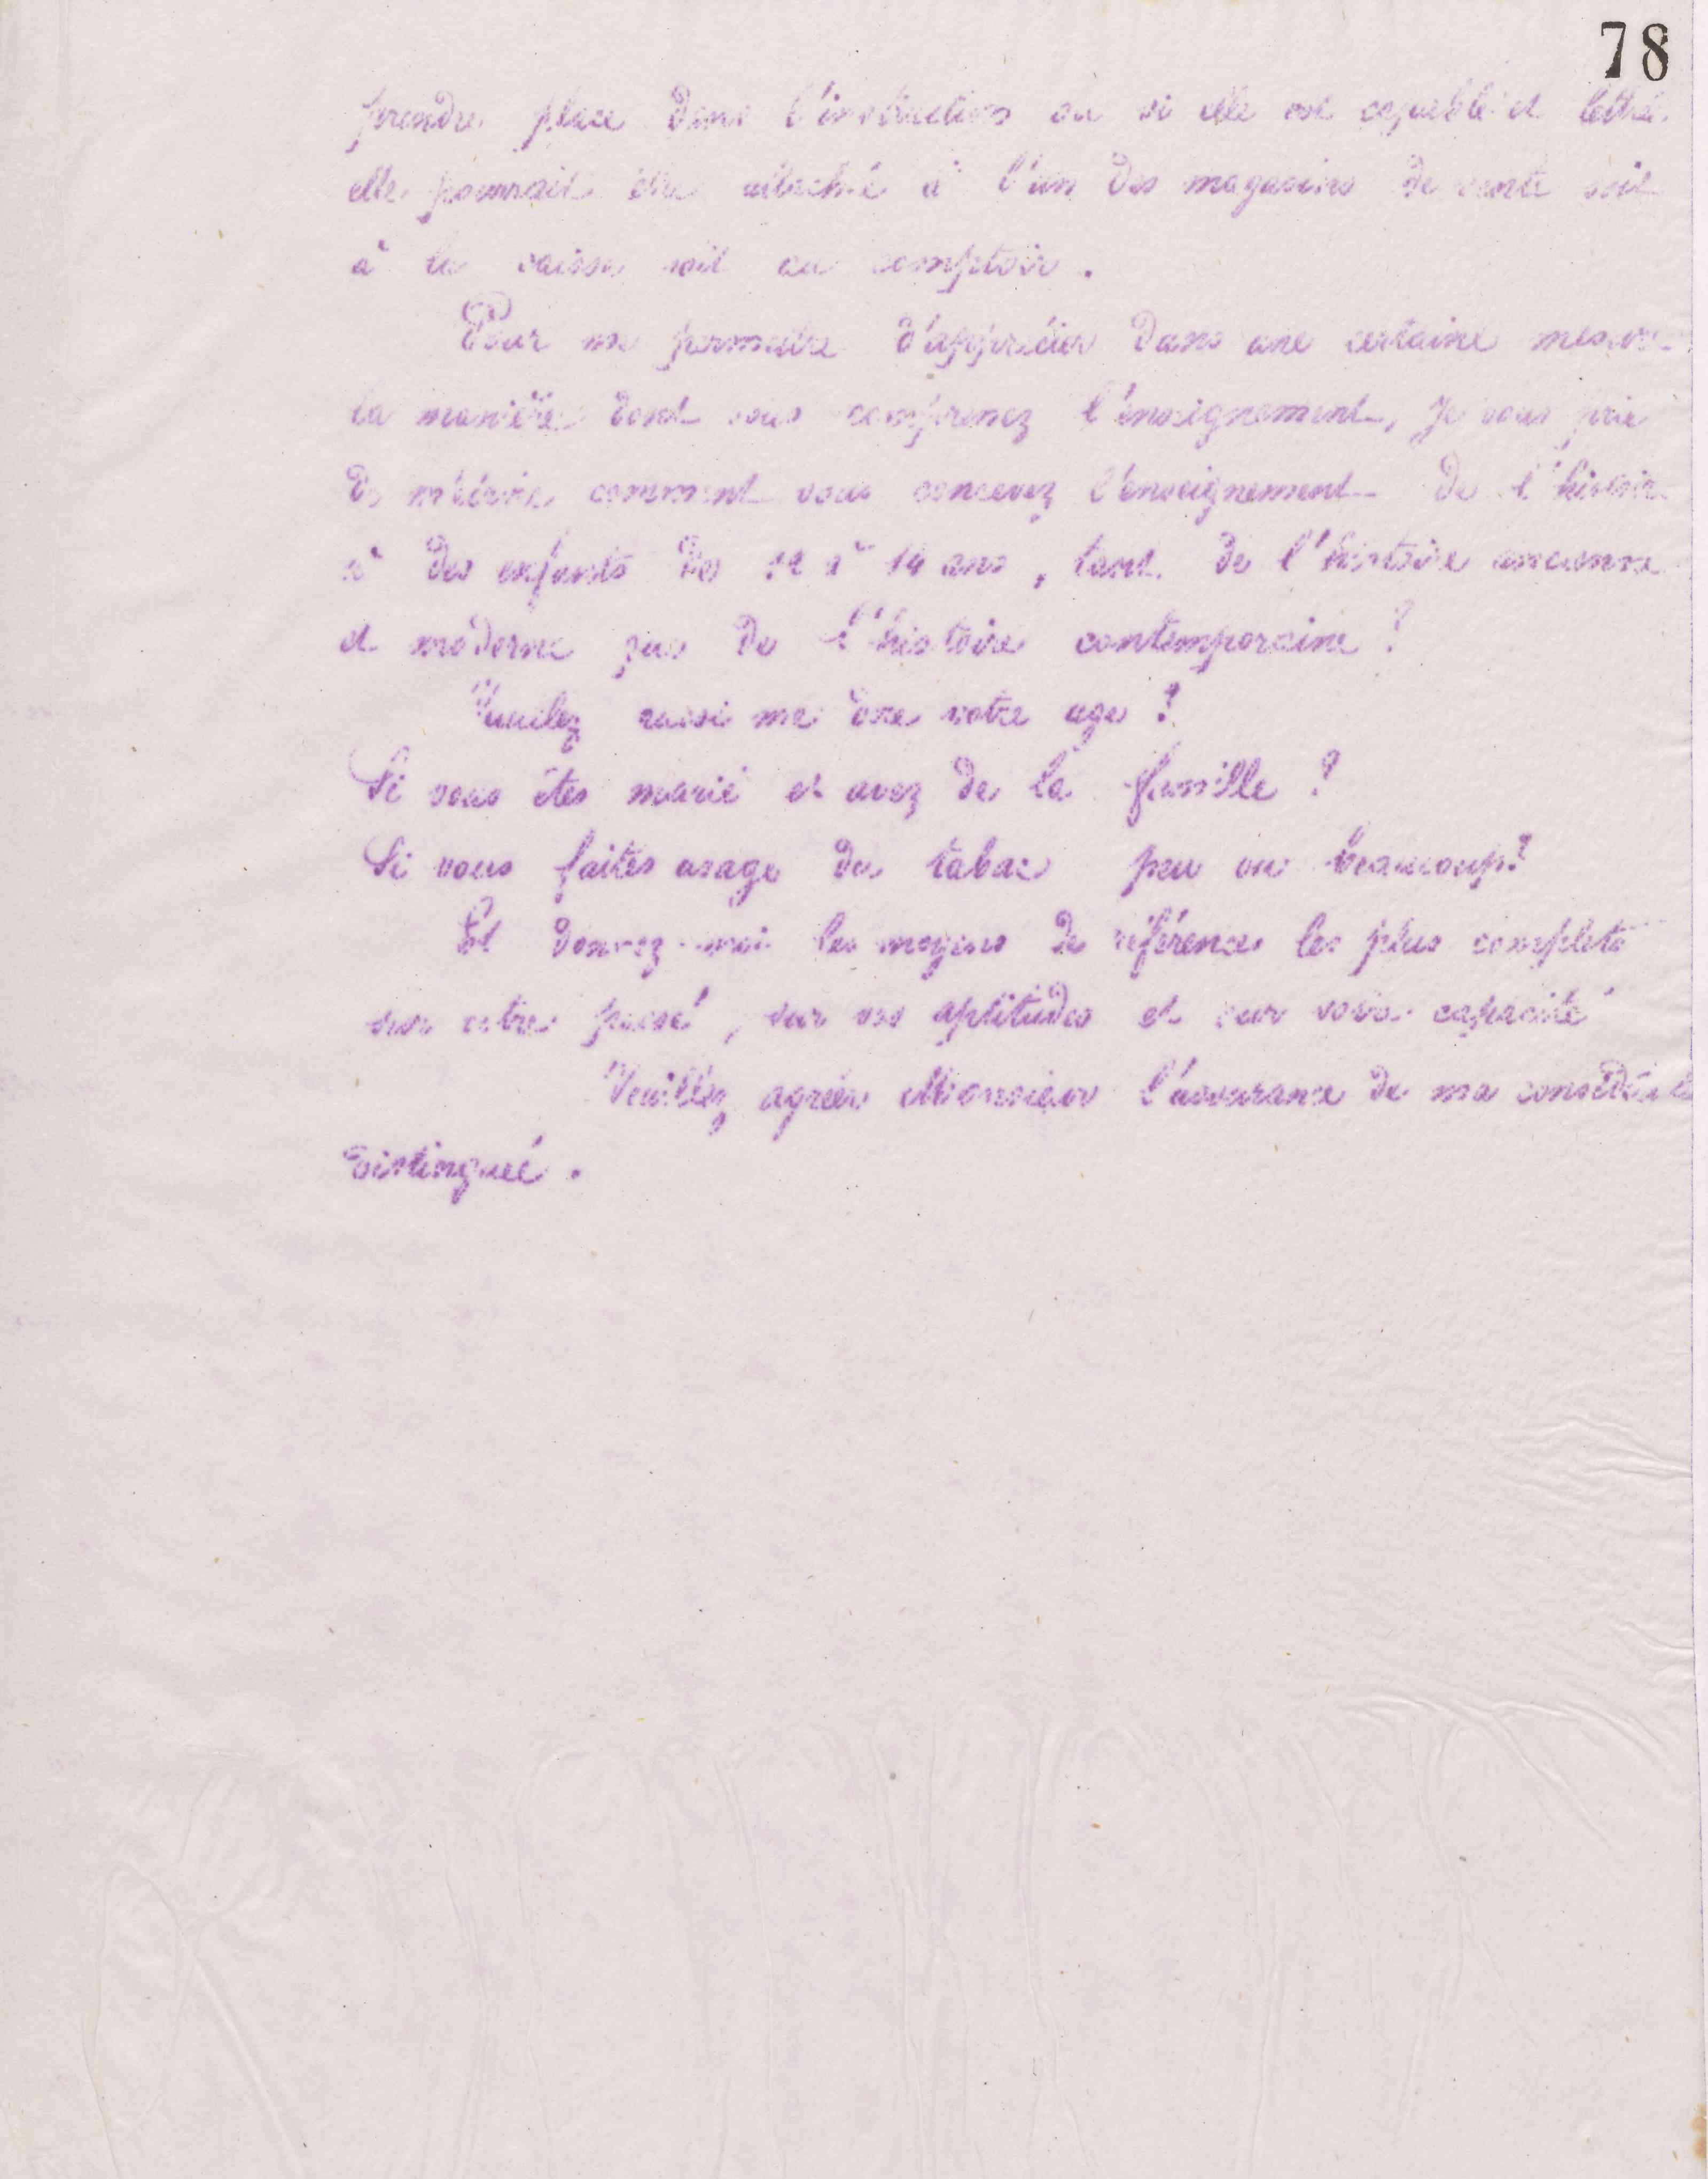 78
prendre place dans l'instruction ou si elle est capable et lettré
elle pourrait être attaché à l'un des magasins de vente soit
à la caisse soit au comptoir.
Pour me permettre d'apprécier dans une certaine mesure
la manière dont vous comprenez l'enseignement, je vous prie
de m'écrire comment vous concevez l'enseignement de l'histoire
à des enfants de 12 à 14 ans, tant de l'histoire ancienne
et moderne que de l'histoire contemporaine?
Veuillez aussi me dire votre age?
Si vous êtes marié et avez de la famille?
Si vous faites usage du tabac peu ou beaucoup?
Et donnez-moi les moyens de références les plus complets
sur votre passé, sur vos aptitudes et sur votre capacité
Veuillez agréer Monsieur l'assurance de ma
distinguée.